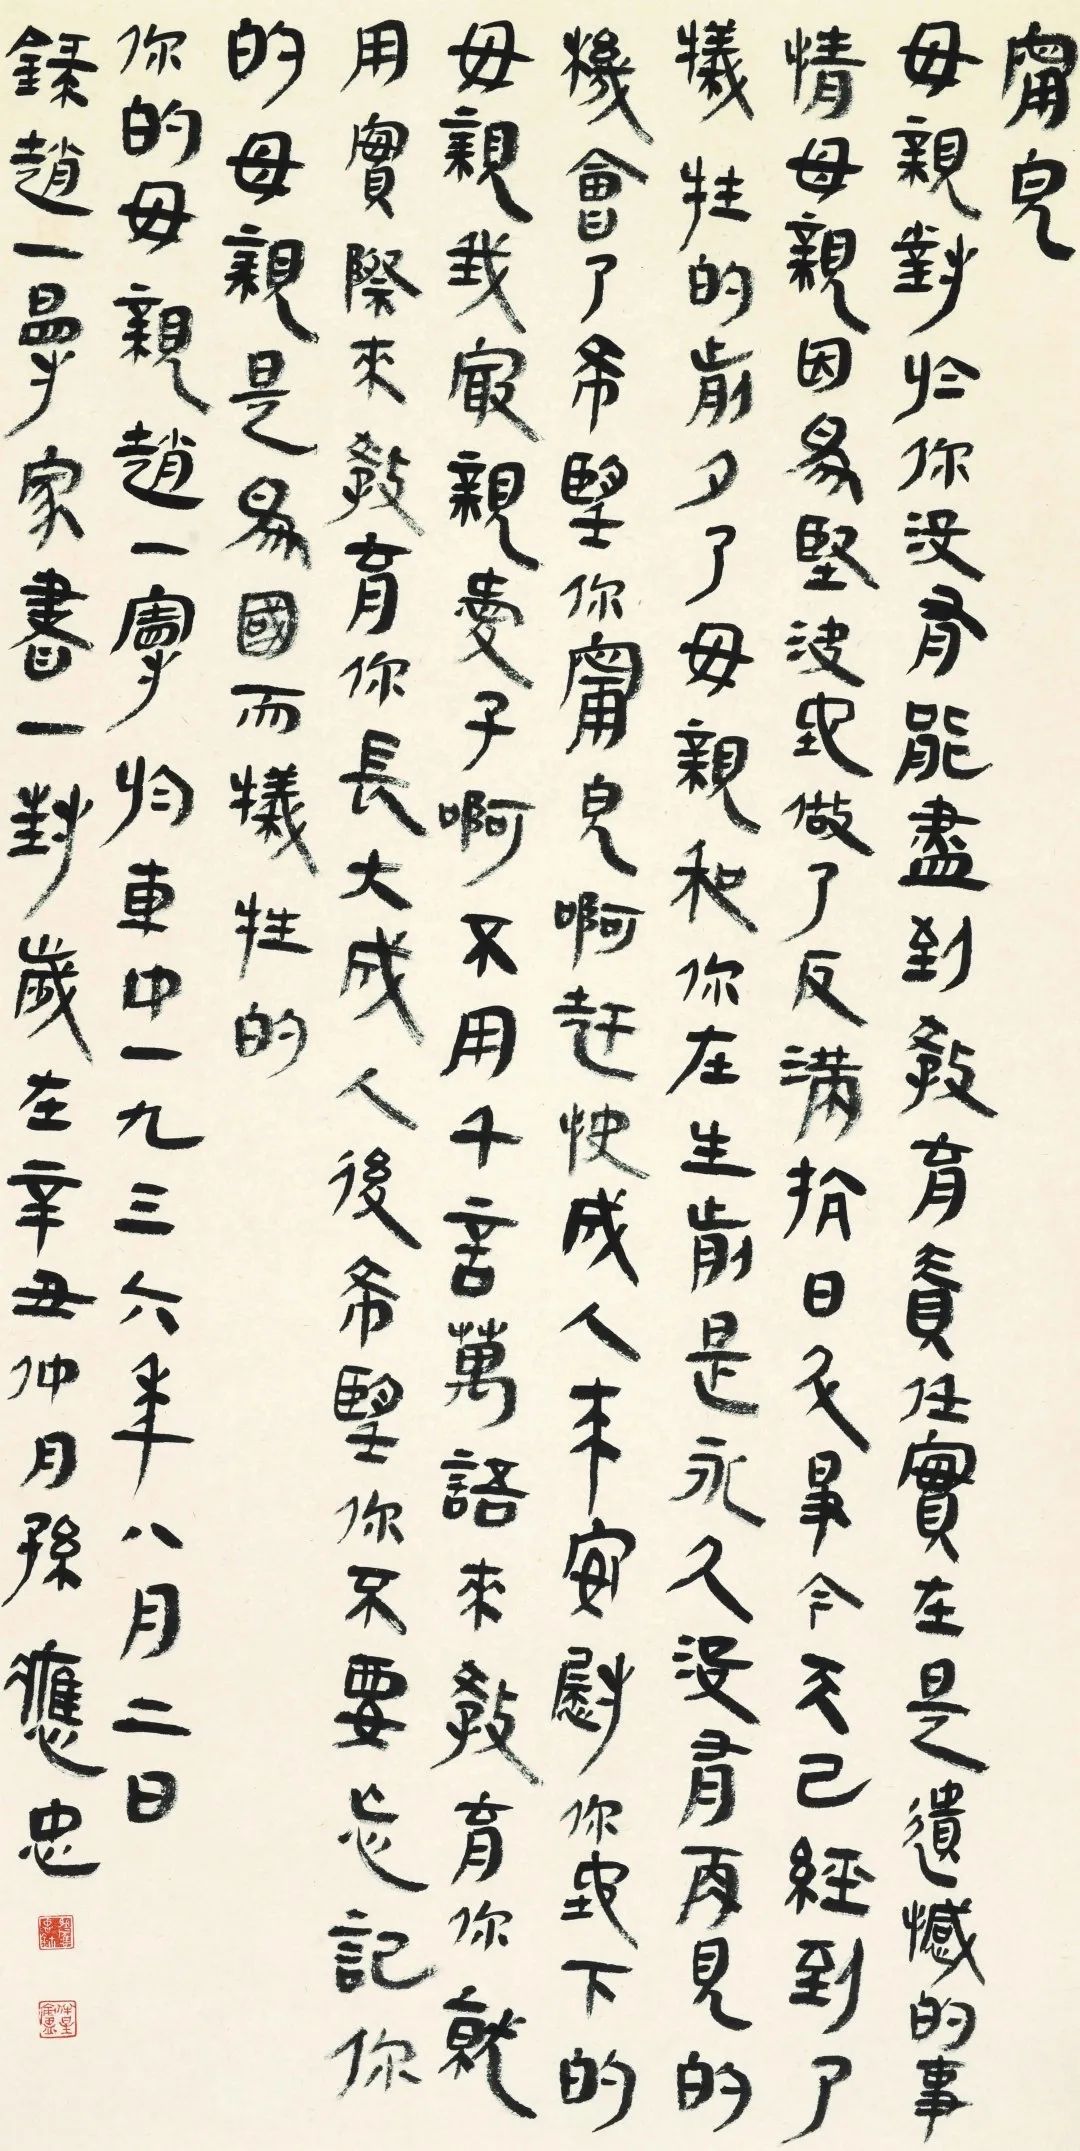 甯兒
母親對於你沒有能盡到教育責任實在是遺憾的事
情母親因為堅決地做了反滿抗日鬥爭今天已經到了
犧牲的前夕了母親和你在生前是永久沒有再見的
機會了希望你甯兒啊赶快成人來安慰你地下的
母親我最親愛子啊不用千言萬語來教育你就
用實際來教育你長大成人後希望你不要忘記你
的母親是為國而犧牲的
你的母親趙一曼於車中一九三六年八月二日
錄趙一曼家書一封歲在辛丑仲月孫應忠